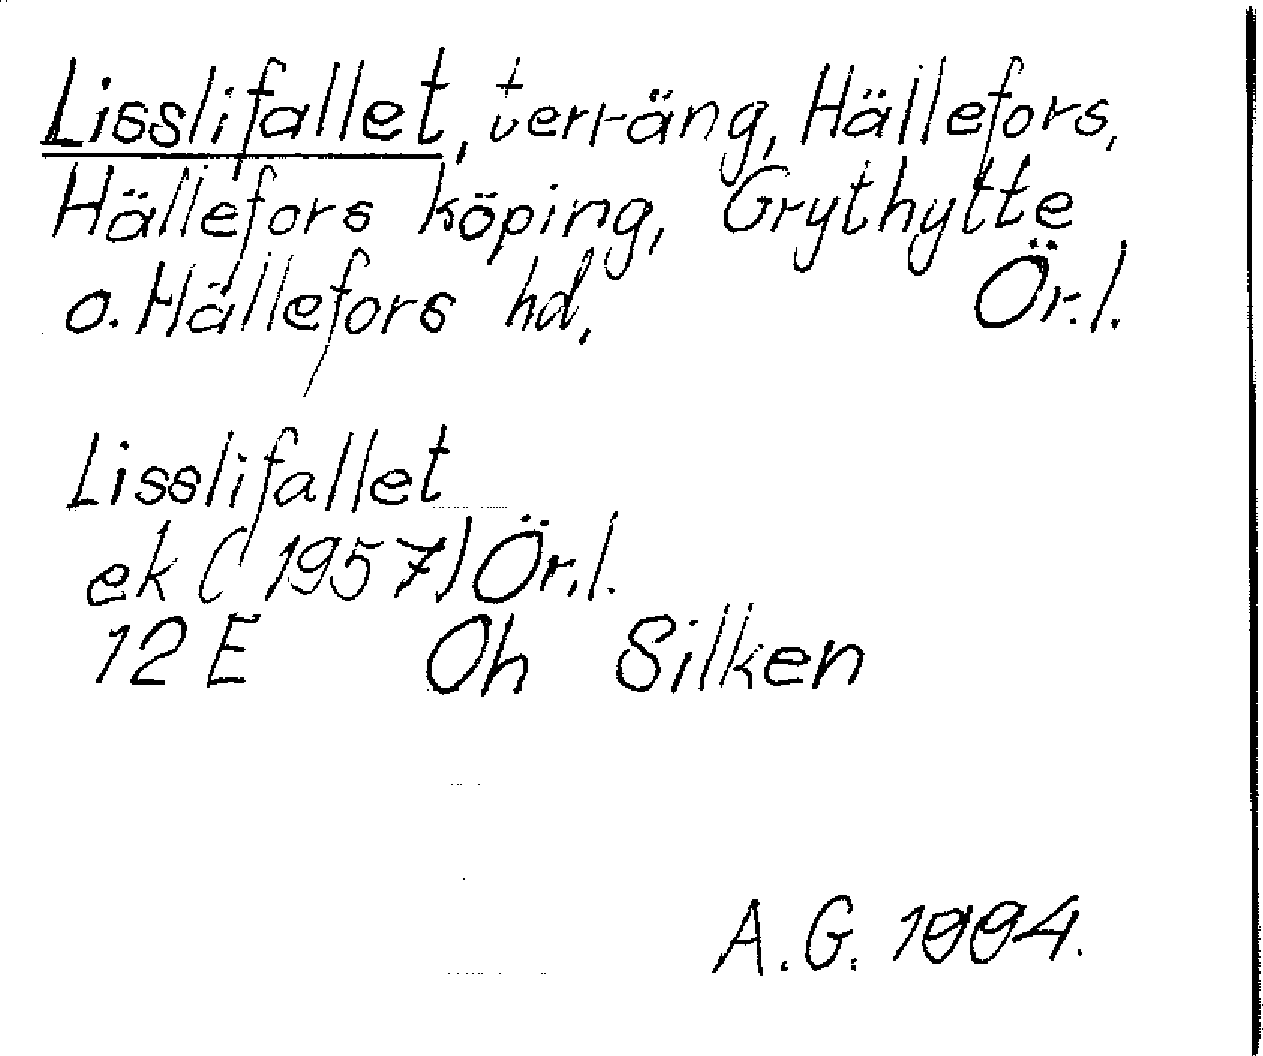 Lisslifallet, terräng, Hällefors,
Hällefors köping, Grythytte
o. Hällefors hd, Ör.l.
Lisslifallet
ek (1957) Ör.l.
12 E Oh Silken
A.G. 1994.